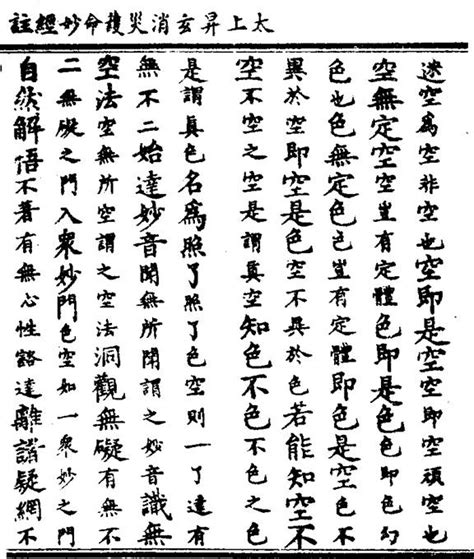 太上昇玄消災護命妙經註
迷空為空非空也空即是空空即空頑空也
空無定空空豈有定體色即是色色即色幻
色也色無定色色豈有定體即色是空色不
異於空即空是色空不異於色若能知空不
空不空之空是謂真空知色不色不色之色
是謂真色名為照了照了色空則一了達有
無不二始達妙音聞無所聞謂之妙音識無
空法空無所空謂之空法洞觀無礙有無不
二無礙之門入眾妙門色空如一眾妙之門
自然解悟不著有無心性豁達離諸疑網不